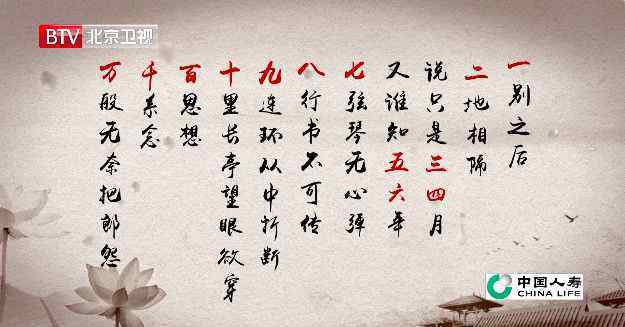 BTV 北京卫视
一别之后
二地相隔
说只是三四月
又谁知五六年
七弦琴无心弹
八行书不可传
九连环从中折断
十里长亭望眼欲穿
百思想
千系念
万般无奈把郎怨
中国人寿
CHINA LIFE